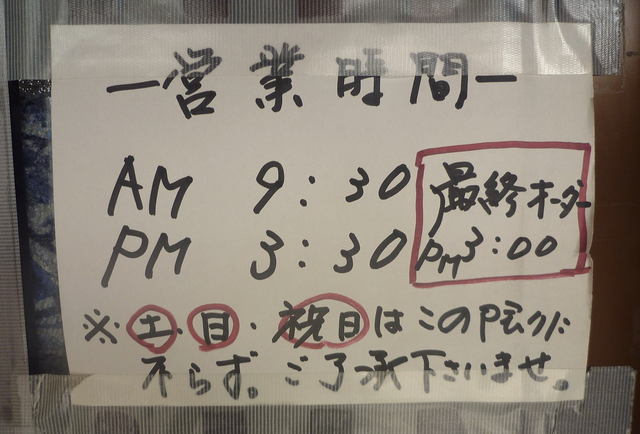 ー営業時間ー
AM 9:30
PM 3:30
最終オーダー
PM3:00
※土・日・祝日はこの限りに
不らず。ご了承下さいませ。